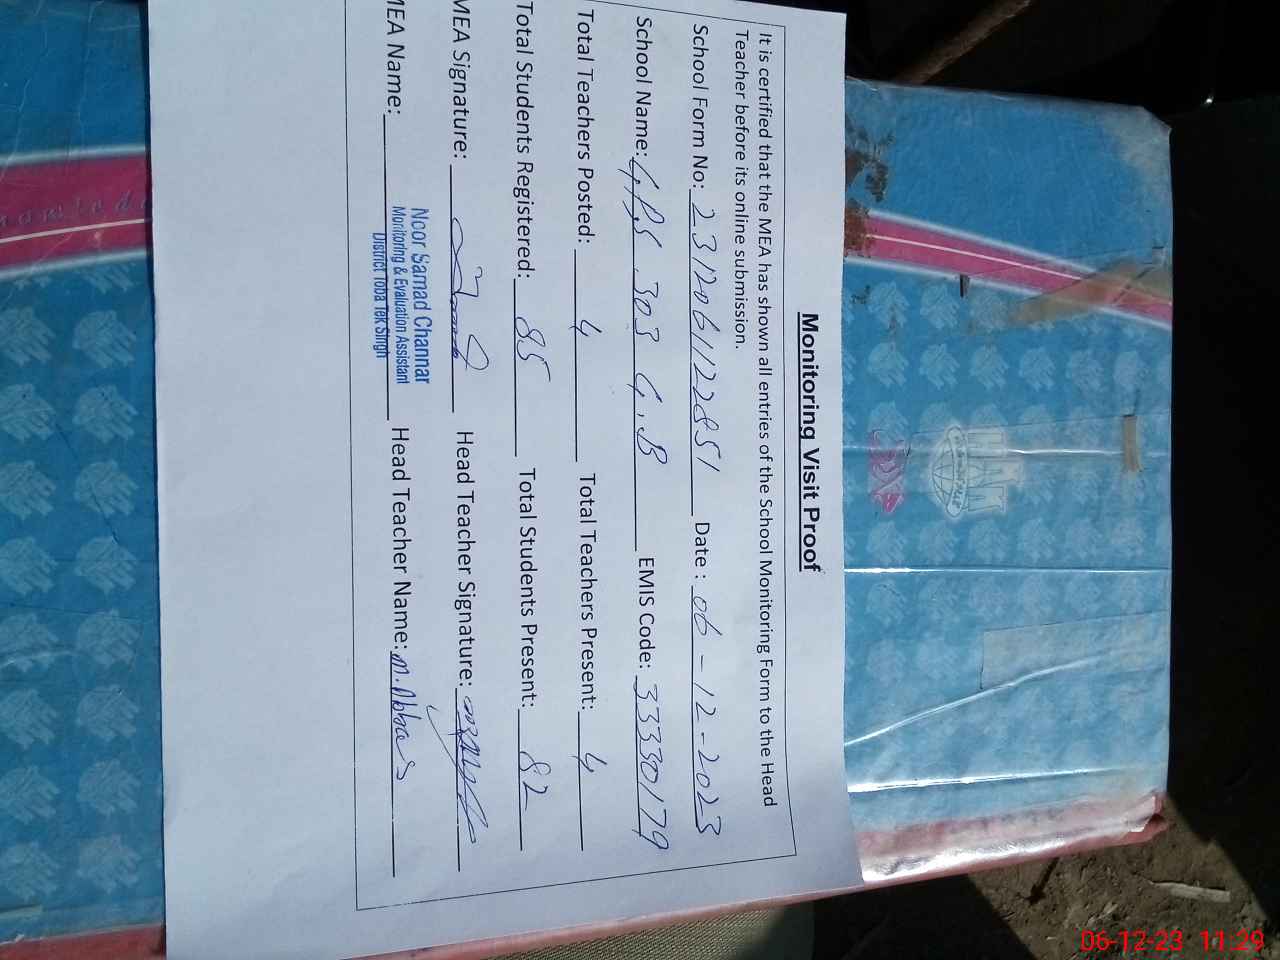 Monitoring Visit Proof
It is certified that the MEA has shown all entries of the School Monitoring Form to the Head
Teacher before its online submission.
School Form No: 2312061122851 Date : 06-12-2023
School Name: G.P.S 303 G.B EMIS Code: 33330179
Total Teachers Posted: 4 Total Teachers Present: 4
Total Students Registered: 85 Total Students Present: 82
MEA Signature: Head Teacher Signature:
MEA Name: Head Teacher Name: M. Abbas
Noor Samad Channar
Monitoring & Evaluation Assistant
District Toba Tek Singh
06-12-23 11:29